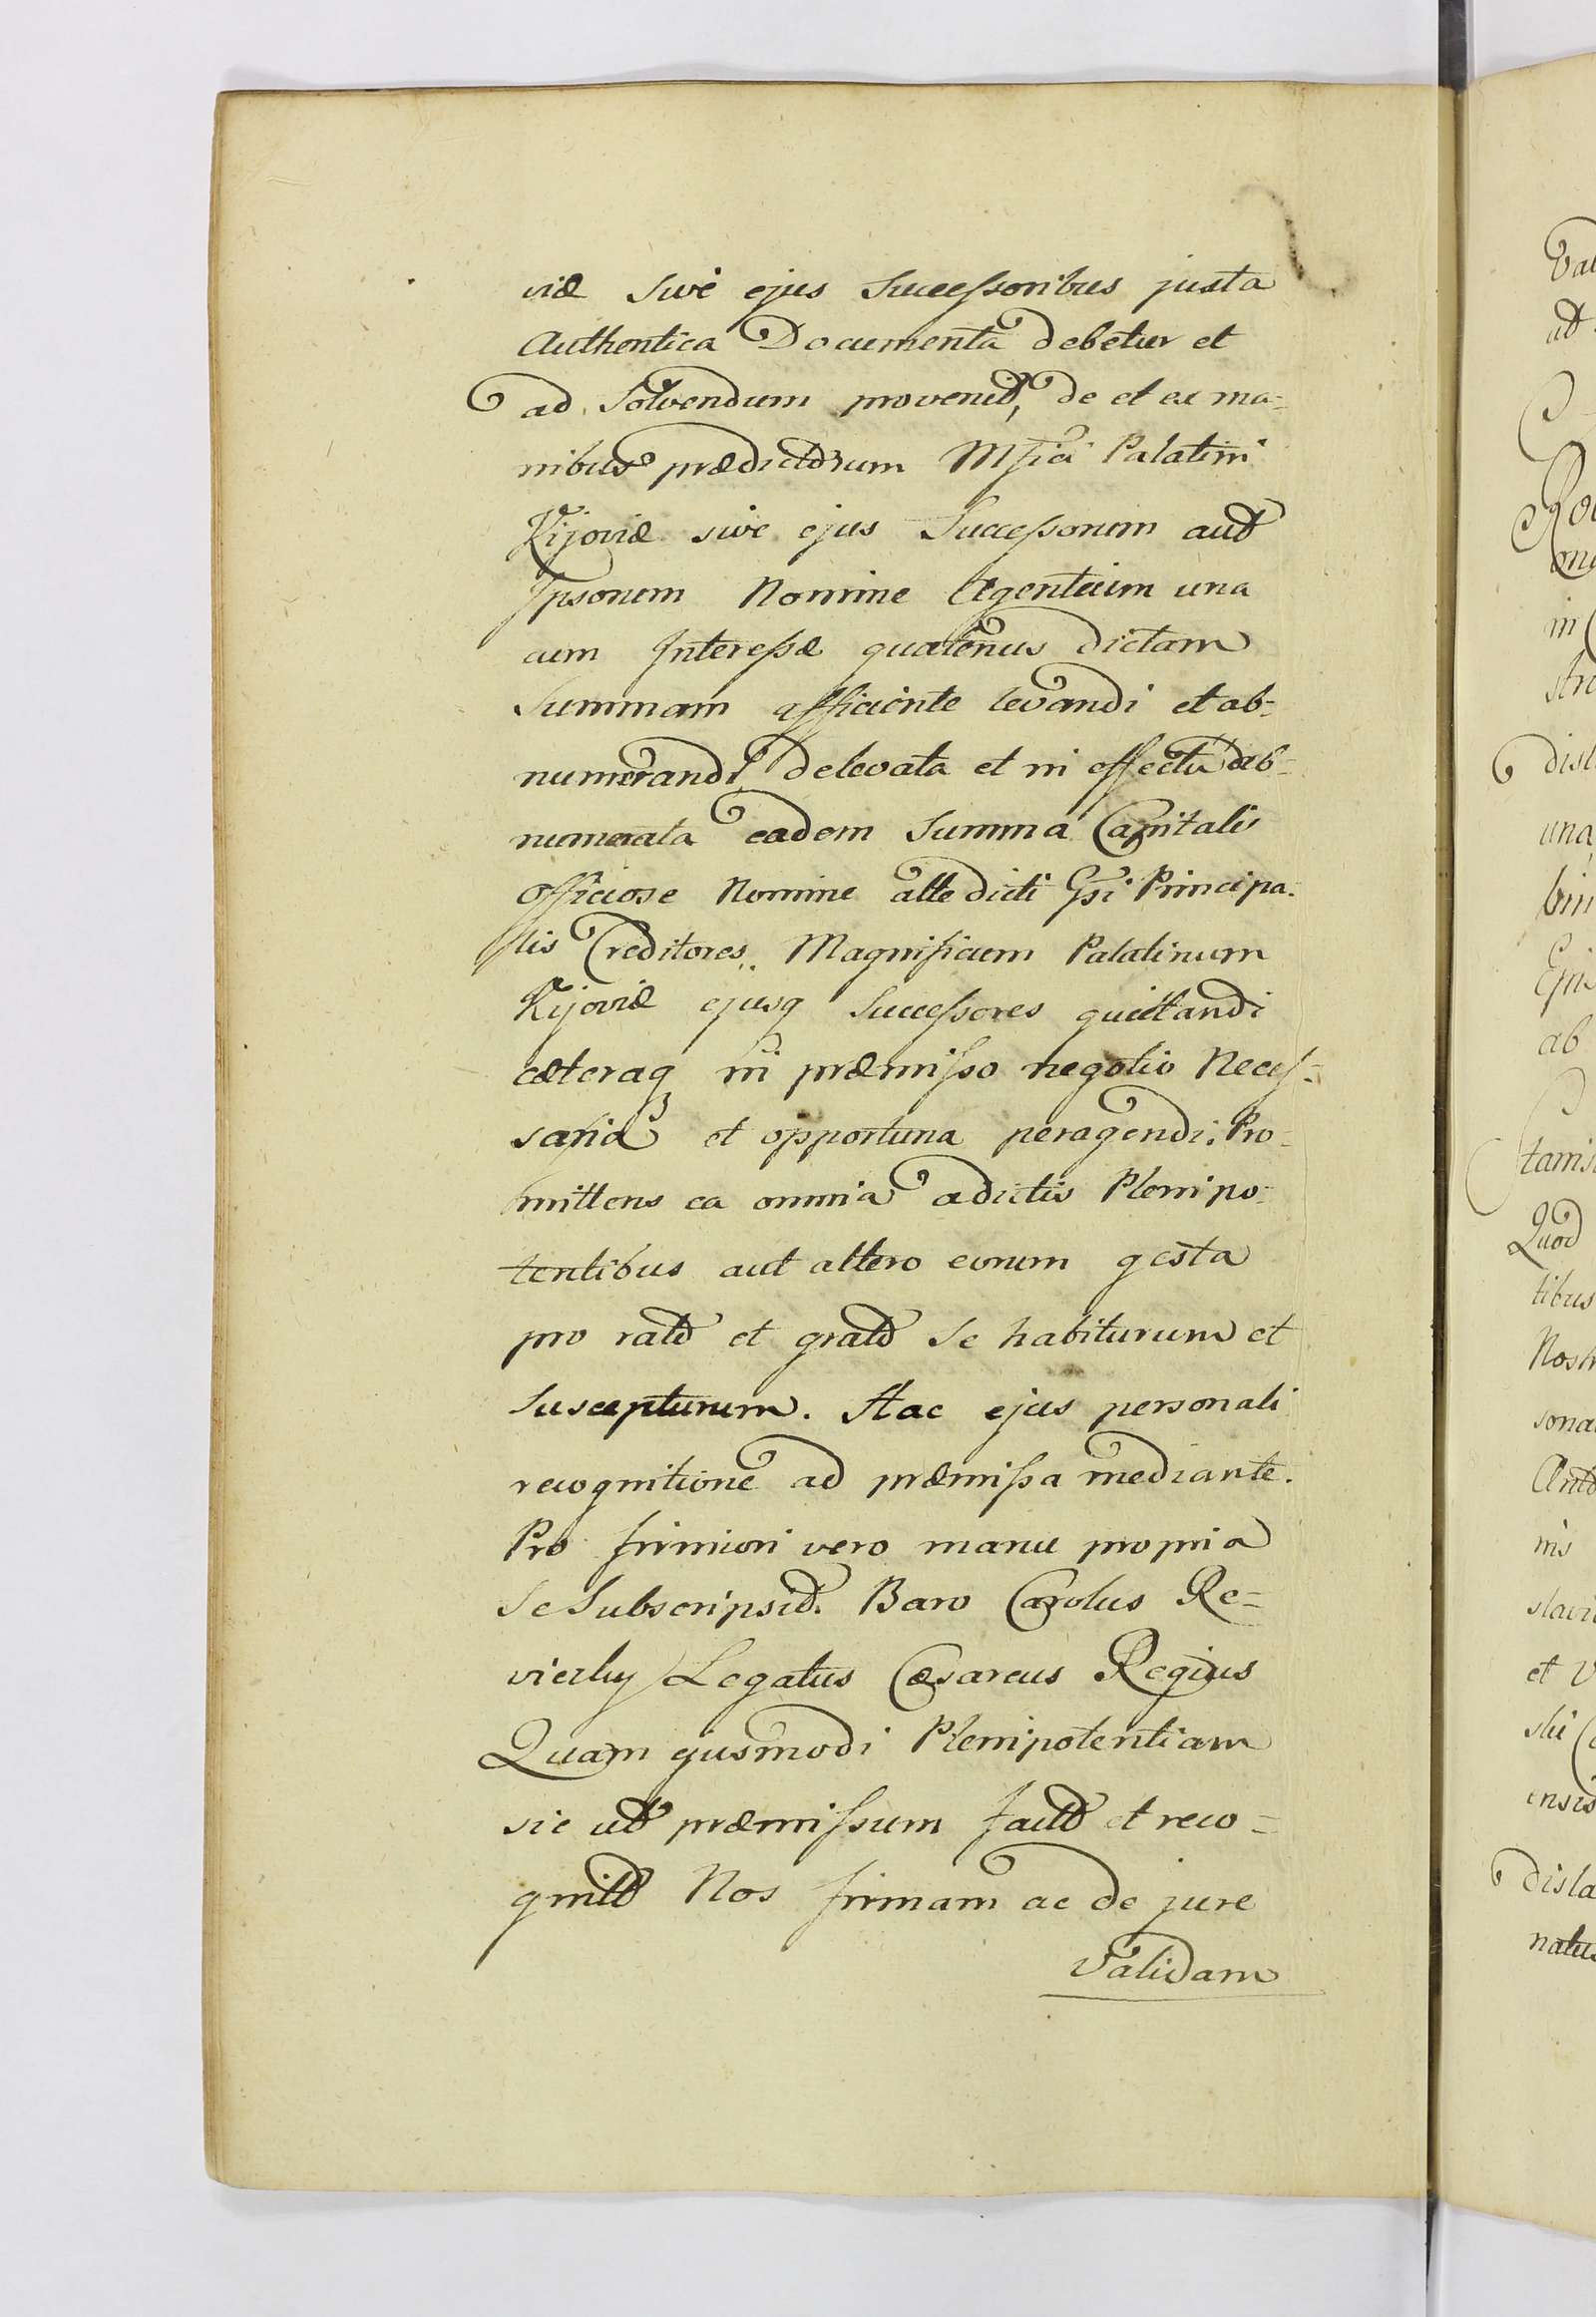 viæ sive ejus Successoribus justa
Authentica Documenta debetur et
ad Solvendum provenit, de et ex ma=
nibus prædictorum Mfici Palatini
Kijoviæ sive ejus Successorum aut
Ipsorum Nomine Agentium una
cum Interesse quatenus dictam
Summam afficiente levandi et ab=
numerandi, de levata et in effectu ab=
numerata eadem Summa Capitalis
Officiose Nomine alte dicti Principa=
lis Creditores Magnificum Palatinum
Kijoviæ ejusq Successores quittandi
cæteraq in præmisso negotio Neces=
saria et opportuna peragendi. Pro=
mittens ea omnia a dictis Plenipo=
tentibus aut altero eorum gesta
pro rato et grato se habiturum et
Suscepturum. Hac ejus personali
recognitione ad præmissa mediante.
Pro firmiori vero manu propria
Se Subscripsit. Baro Carolus Re=
viczky Legatus Cæsareus Regius
Quam ejusmodi Plenipotentiam
sic ut præmissum factâ et reco=
gnitâ Nos firmam ac de jure
Validam